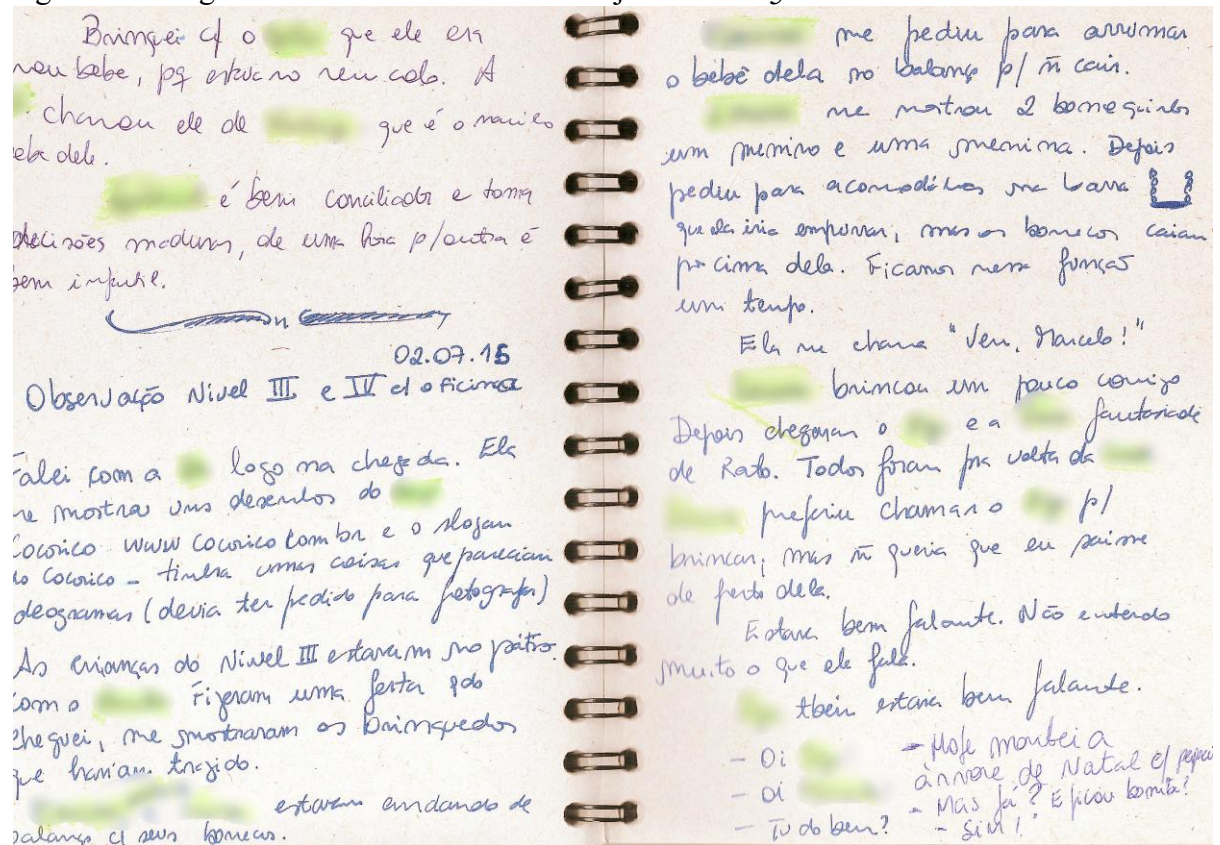 Brinquei c/ o que ele era
meu bebe, pq estava no meu colo. A
chamou ele de que é o
bebe dele.
é bem conciliador e toma
decisões maduras, de uma hora p/outra é
bem
02.07.15
Observação Nivel III e IV c/ oficina
Falei com a logo na chegada. Ela
me mostrou uns desenhos do
Cocorico www cocorico com br e o slogan
do Cocorico - tinha umas coisas que pareciam
ideogramas (devia ter pedido para fotografar)
As crianças do Nivel III estavam no pátio.
Com o Fizeram uma festa qdo
cheguei, me mostraram os brinquedos
que haviam trazido.
estavam andando de
balanço c/ seus bonecos.
me pediu para arrumar
o bebê dela no balanço p/ ñ cair.
me mostrou 2 bonequinhos
um menino e uma menina. Depois
pediu para acomodá-los na barra
que ela iria empurrar, mas os bonecos caiam
por cima dela. Ficamos nessa função
um tempo.
Ela me chama "Vem, Marcelo!"
brincou um pouco comigo
Depois chegaram o e a fantasiada
de Rato. Todos foram pra volta da
preferiu chamar o p/
brincar, mas ñ queria que eu saisse
de perto dela.
Estava bem falante. Não entendo
muito o que ele fala.
tbém estava bem falante.
- Oi
- Oi
- Tudo bem?
- Hoje montei a
árvore de Natal c/
- Mas já? E ficou bonita?
- Sim!